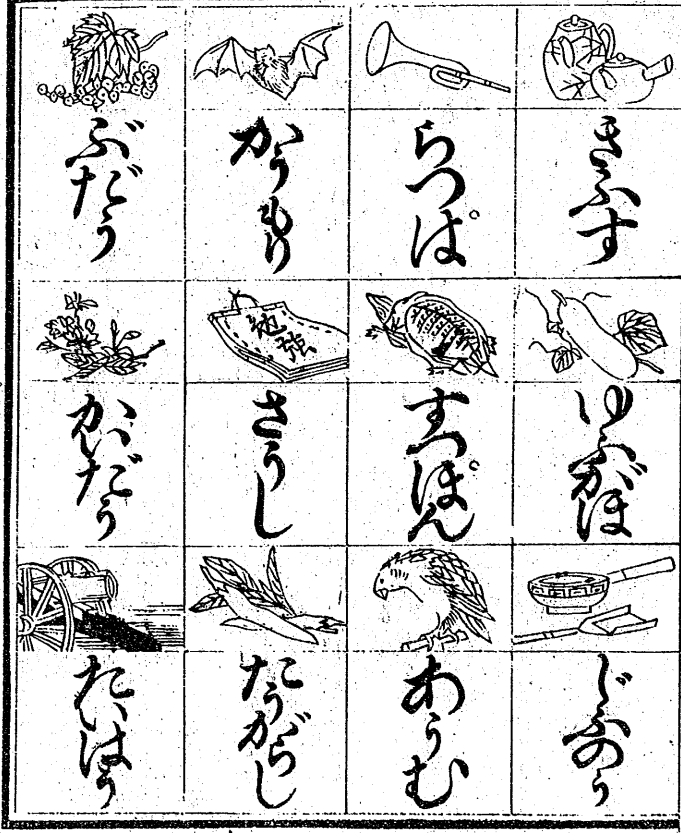 きふす
らつぱ
かうもり
ぶだう
ゆふがほ
すつぽん
勉強
さうし
かいだう
じふのう
あうむ
たうがらし
たいはう